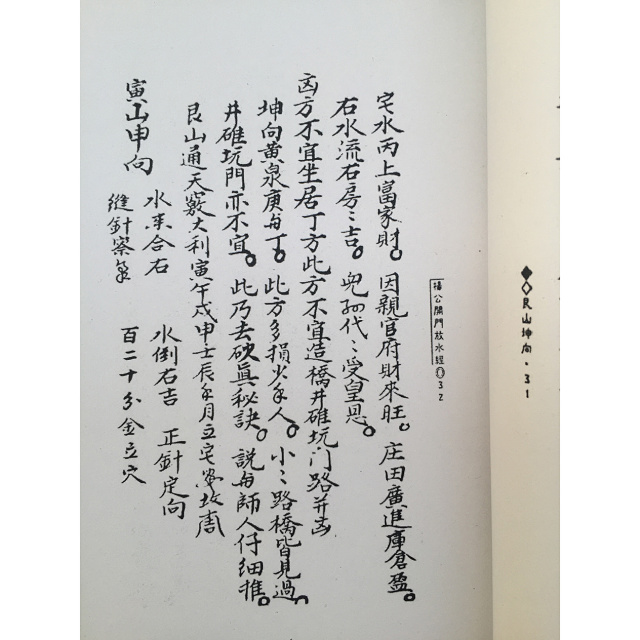 艮山坤向·31
楊公開門放水經 32
宅水丙上富家財。因親官府財來旺。庄田廣進庫倉盈。
右水流右房〻吉。兒孫代〻受皇恩。
凶方不宜坐居丁方此方不宜造橋井碓坑门路并凶
坤向黃泉庚与丁。此方多損少年人。小〻路橋皆見過。
井碓坑門亦不宜。此乃去砍眞秘訣。説与師人仔細推。
艮山通天竅大利寅午戌申壬辰年月立宅塟坟
寅山申向
水来合右 水倒右吉 正針定向
縫針察氣 百二十分金立穴